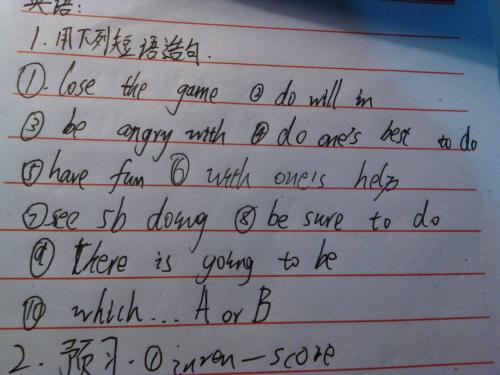 英语:
1.用下列短语造句.
①.lose the game ② do will in
③ be angry with ④ do one's best to do
⑤have fun ⑥ with one's help
⑦see sb doing ⑧ be sure to do
⑨ there is going to be
⑩ which... A or B
2.预习.① — score